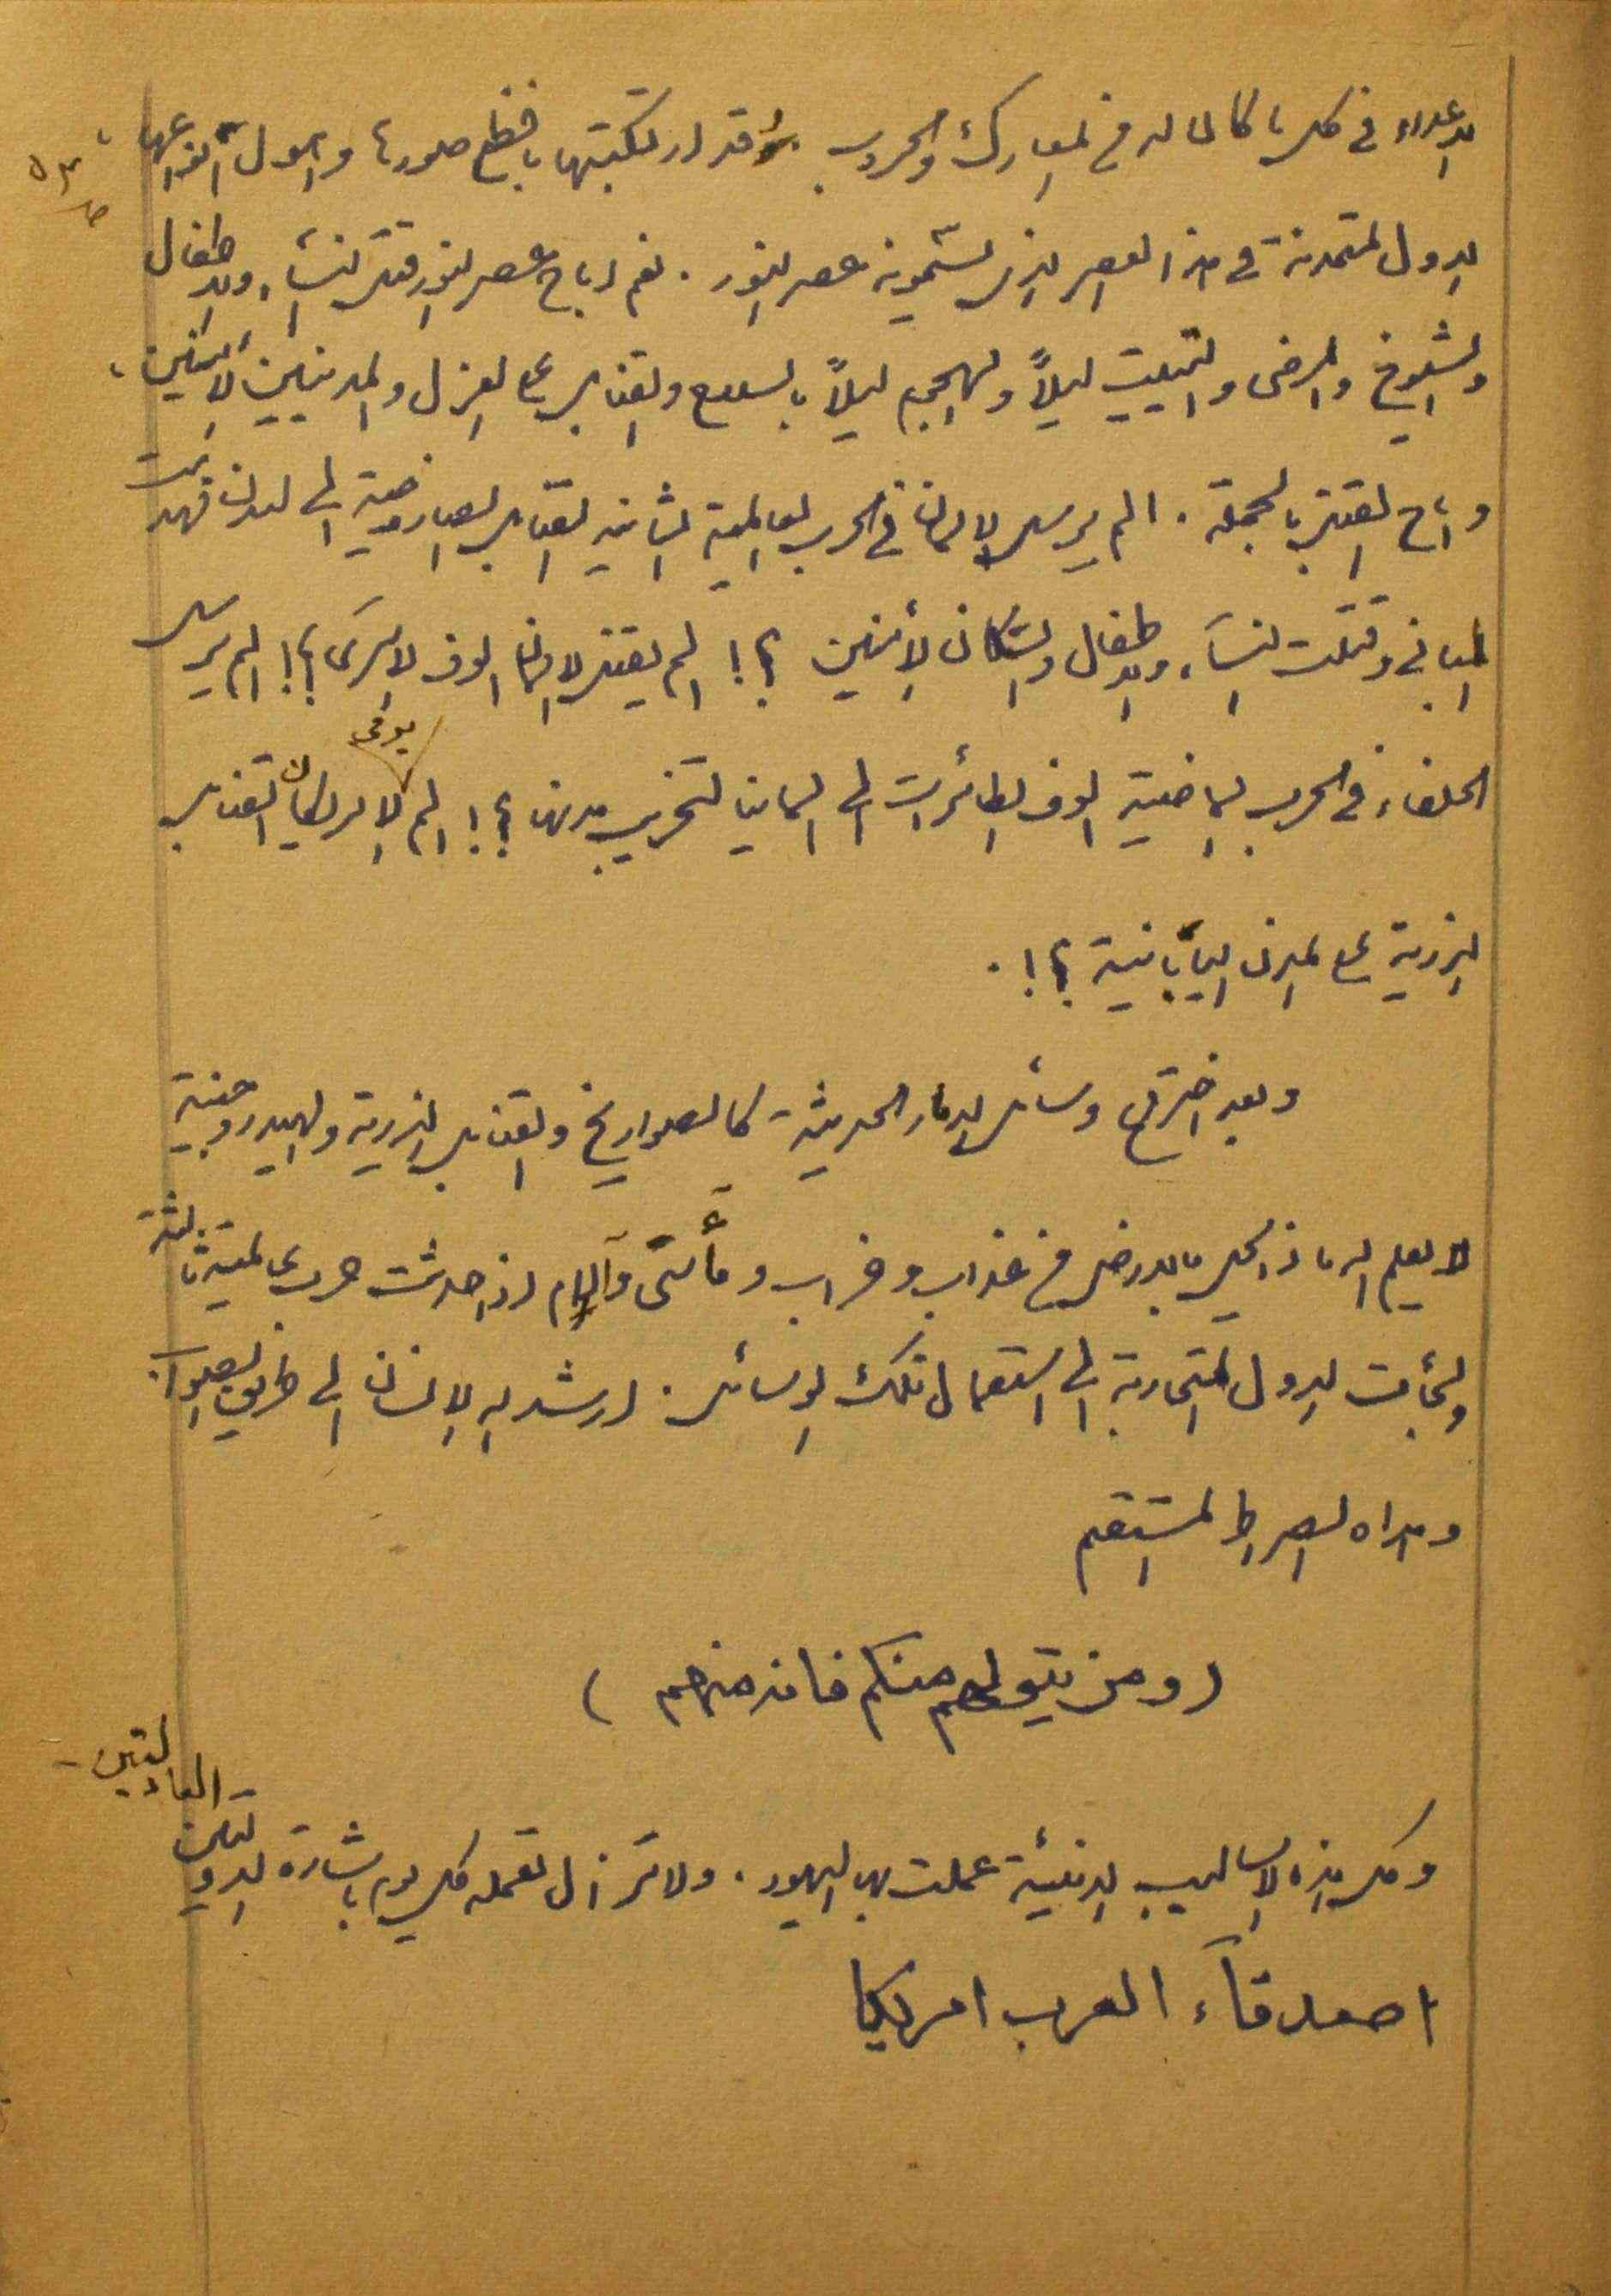 الاعداء في كل ما كا لما له في المعارك والحروب. وقد ارتكبتها بافظع صورها واهول انواعها،
ص ٥٣
الدول المتمدنة في هذا العصر الذي تسمونه عصر النور. نعم اباح عصر النور قتل النساء والاطفال
والشيوخ والمرضى والتبييت ليلاً والهجم ليلاً بالسلاح والقنابل على العزل والمدنيين الآمنين،
واباح القتل بالجملة. الم يرسل الالمان في الحرب العالمية الثانية القنابل الصاروخية الى لندن فهدمت
المباني وقتلت النساء والاطفال والسكان الآمنين ؟! الم يقتل الالمان الوف الاسرى ؟! الم يرسل
الحلفاء في الحرب الماضية الوف الطائرات الى المانيا لتخريب مدنها ؟! الم يرمي الامريكان القنابل
الذرية على المدن اليابانية ؟!.
وبعد اختراع وسائل الدمار الحديثة كالصواريخ والقنابل الذرية والهيدروجينية
لا يعلم الا الله ماذا يحل بالارض من عذاب وخراب ومآسى وآلام اذا حدثت حرب عالمية ثالثة
ولجأت الدول المتحاربة الى استعمال تلك الوسائل. ارشد الله الانسان الى طريق الصواب.
وهداه الصراط المستقيم
(ومن يتولهم منكم فانه منهم)
وكل هذه الاساليب الدنيئة عملت بها اليهود. ولا تزال تعمله كل يوم باشارة الدولتين العادلتين -
اصدقآء العرب امريكا